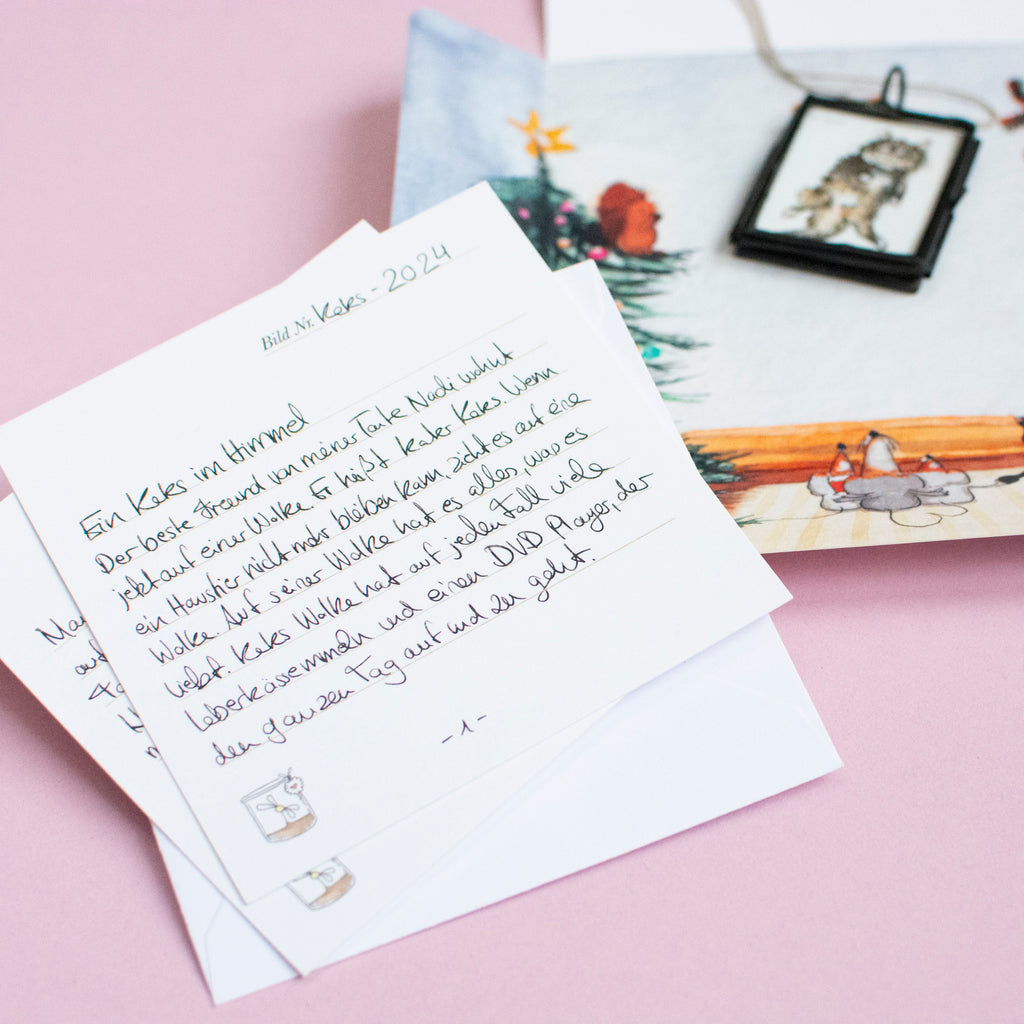 Bild Nr. Keks - 2024
Ein Keks im Himmel
Der beste Freund von meiner Tante Nadi wohnt
jetzt auf einer Wolke. Er heißt Kater Keks. Wenn
ein Haustier nicht mehr bleiben kann, zieht es auf eine
Wolke. Auf seiner Wolke hat es alles, was es
liebt. Keks Wolke hat auf jeden Fall viele
Leberkässemmeln und einen DVD Player, der
den ganzen Tag auf und zu geht.
- 1 -